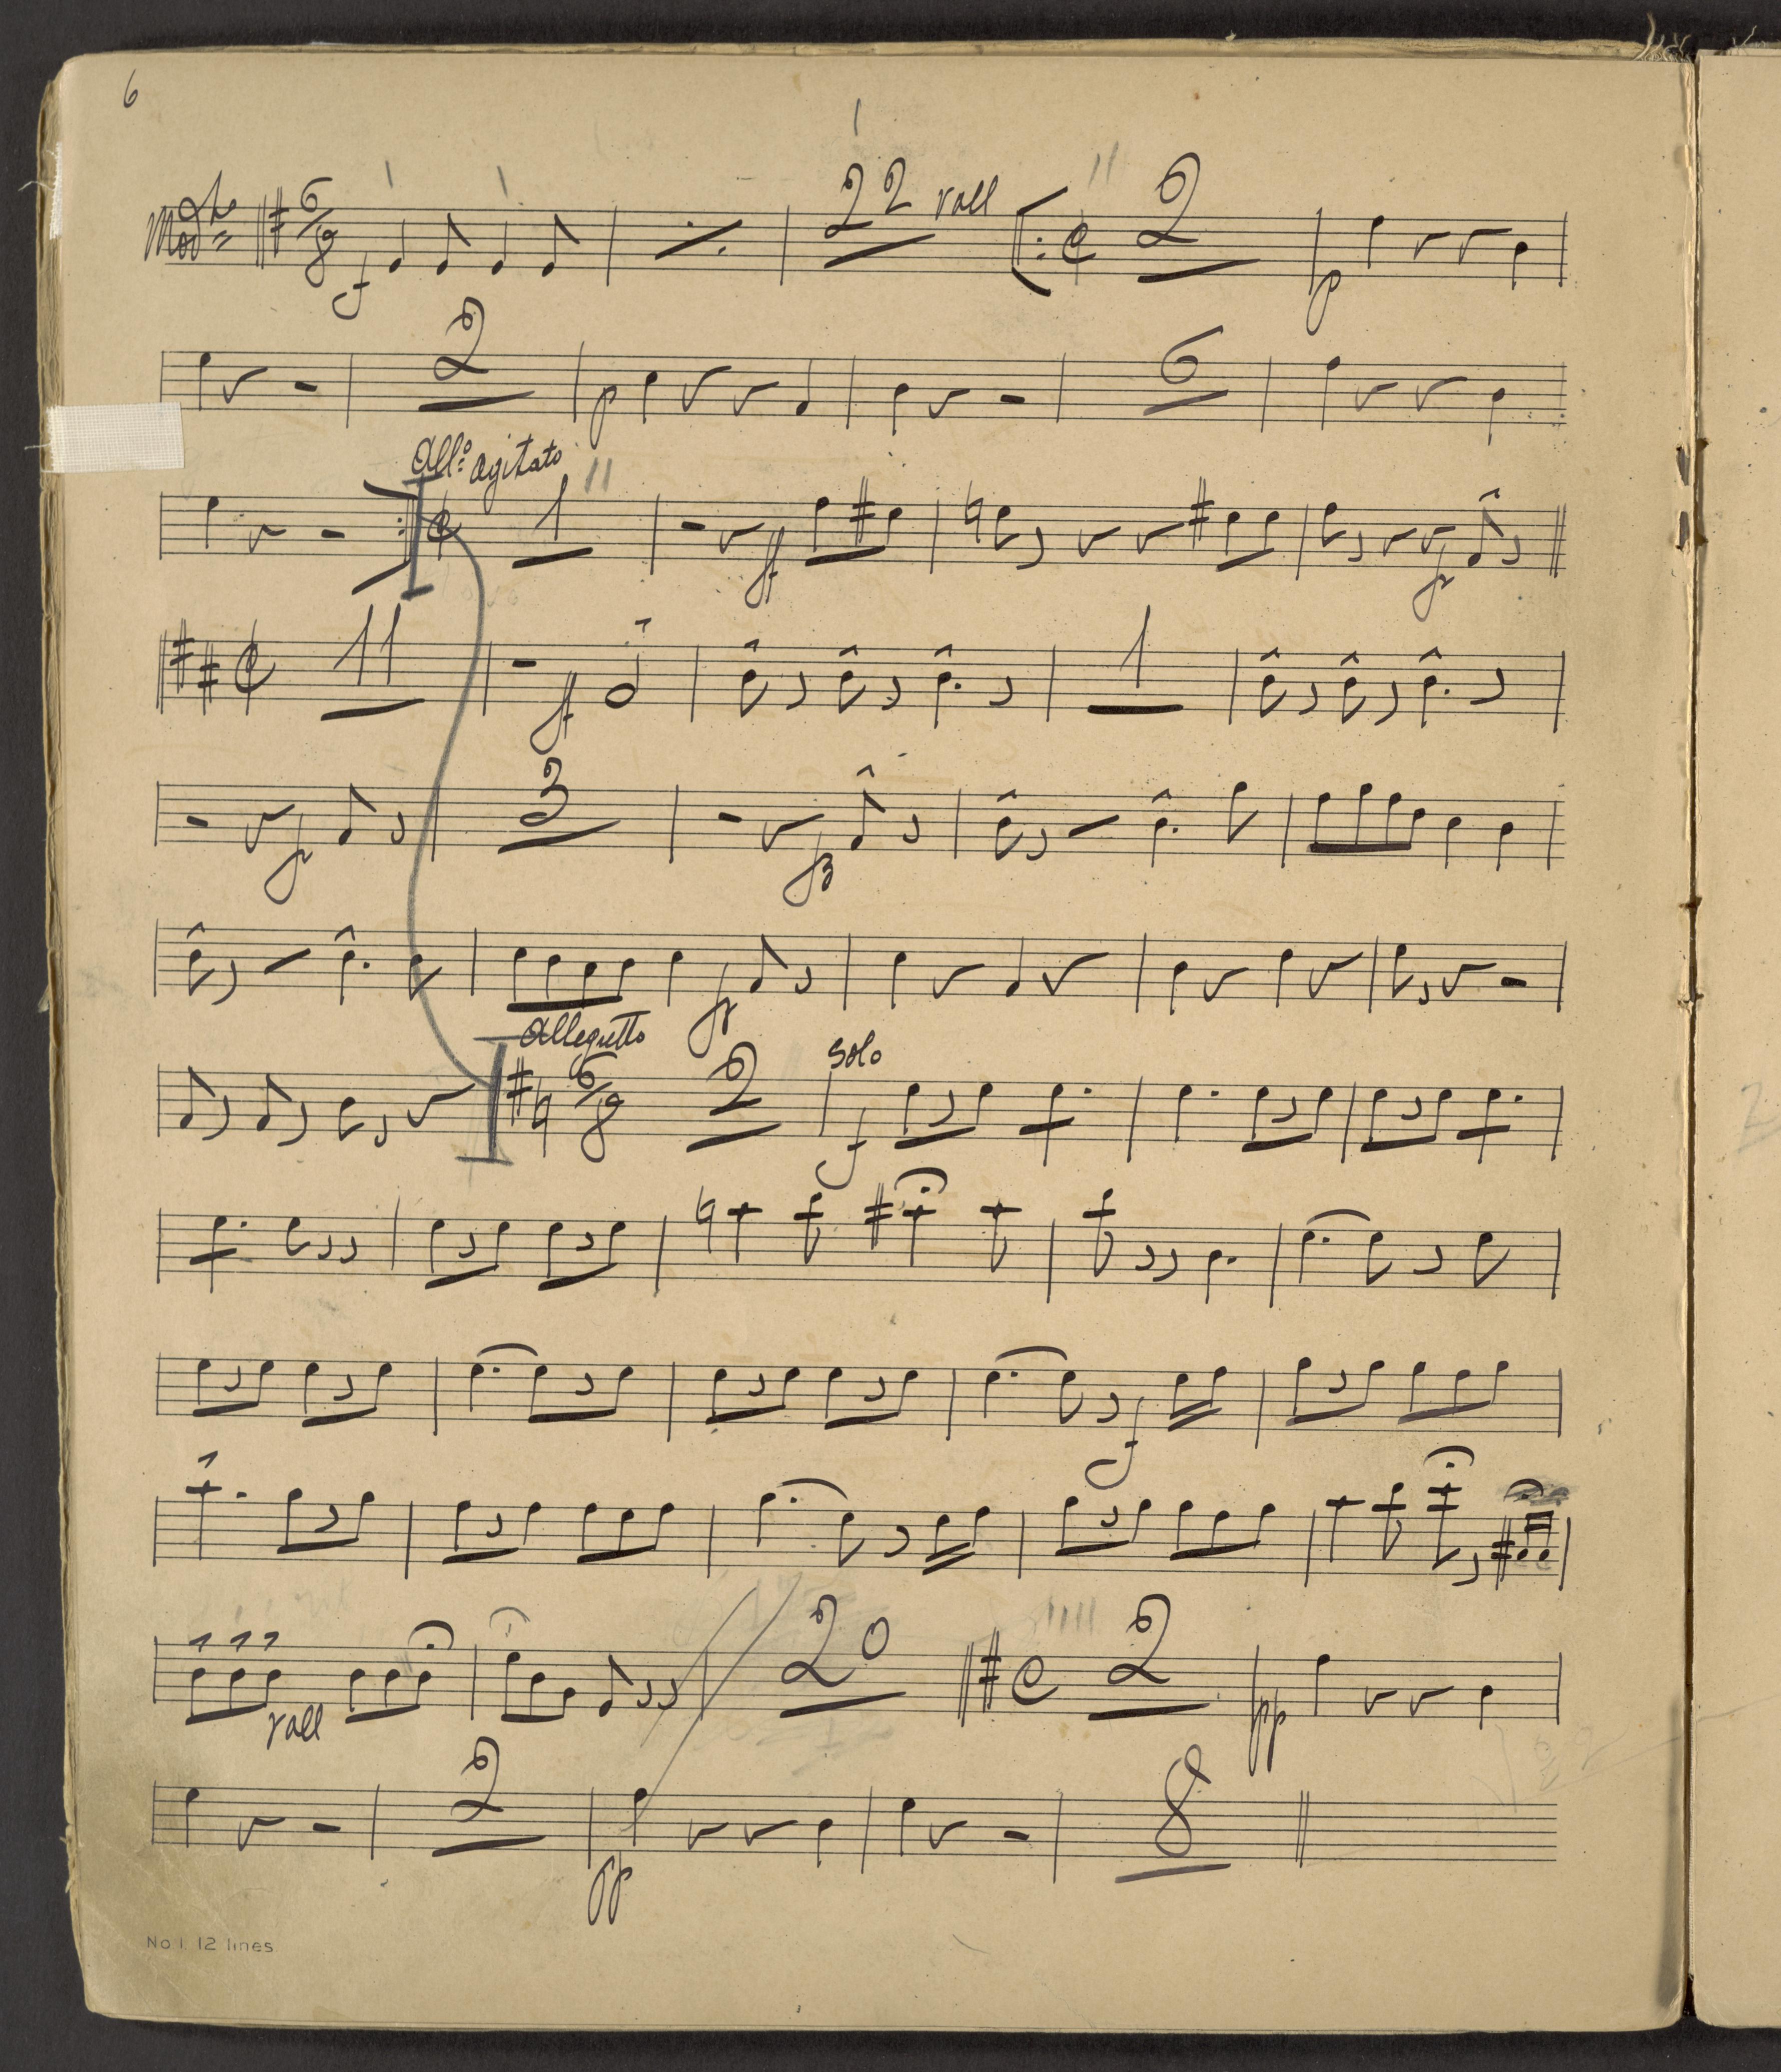 6
Modto 6/8 f 22 rall C 2 p
2 p 6
Allo: agitato
C 1 ff fz
C 11 ff 1
fz 3 fz
fz
Allegretto
6/8 2 solo f
f
rall 20 C 2 pp
2 pp 8
No 1. 12 lines.